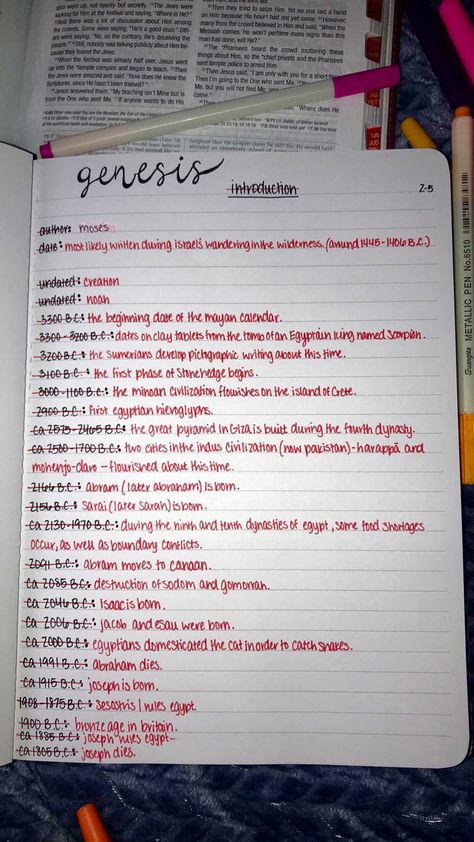 also went up, not openly but secretly.
looking for him at the festival and
"And there was a lot of discussion about him among
the crowds. Some were saying, "He's a good man." Oth-
ers were saying, "No, on the contrary, he's deceiving the
people." Still, nobody was talking publicly about him be-
cause they feared the Jews.
When the festival was already half over, Jesus went
up into the temple complex and began to teach. Then
the Jews were amazed and said, "How does he know the
Scriptures, since he hasn't been trained?"
Jesus answered them, "My teaching isn't Mine but is
from the One who sent Me. If anyone wants to do His
Then they tried to seize Him. Yet no one laid a hand
on Him because His hour had not yet come. However,
many from the crowd believed in Him and said, "When the
Messiah comes, He won't perform more signs than this
man has done, will He?"
The Pharisees heard the crowd muttering these
things about Him, so the chief priests and the Pharisees
sent temple police to arrest Him.
Then Jesus said, "I am only with you for a short
Then I'm going to the One who sent Me.
Me, but you will not find Me,
genesis
introduction
2-5
author: moses
date: most likely written during israel's wandering in the wilderness. (around 1445-1406 B.C.)
undated: creation
undated: noah
3300 B.C.: the beginning date of the mayan calendar.
3300-3200 B.C.: dates on clay tablets from the tomb of an Egyptain king named Scorpion.
3200 B.C.: the sumerians develop pictographic writing about this time.
3100 B.C.: the first phase of Stonehedge begins.
3000-1100 B.C.: the minoan civilization flourishes on the island of Crete.
2900 B.C.: first egyptian hieroglyphs.
ca 2575-2465 B.C.: the great pyramid in Giza is built during the fourth dynasty.
ca 2500-1700 B.C.: two cities in the indus civilization (now pakistan)-harappā and
mohenjo-daro - flourished about this time.
2166 B.C.: abram (later abraham) is born.
2156 B.C.: sarai (later sarah) is born.
ca 2130-1970 B.C.: during the ninth and tenth dynasties of egypt, some food shortages
occur, as well as boundary conflicts.
2091 B.C.: abram moves to canaan.
ca 2085 B.C.: destruction of sodom and gomorrah.
ca 2066 B.C.: Isaac is born.
ca 2006 B.C.: jacob and esau were born.
ca 2000 B.C.: egyptians domesticated the cat in order to catch snakes.
ca 1991 B.C.: abraham dies.
ca 1915 B.C.: joseph is born.
1908-1875 B.C.: sesostris I rules egypt.
1900 B.C.: bronze age in britain.
ca 1885 B.C.: joseph rules egypt-
ca 1805 B.C.: joseph dies.
METALLIC PEN No.6510
Guangna